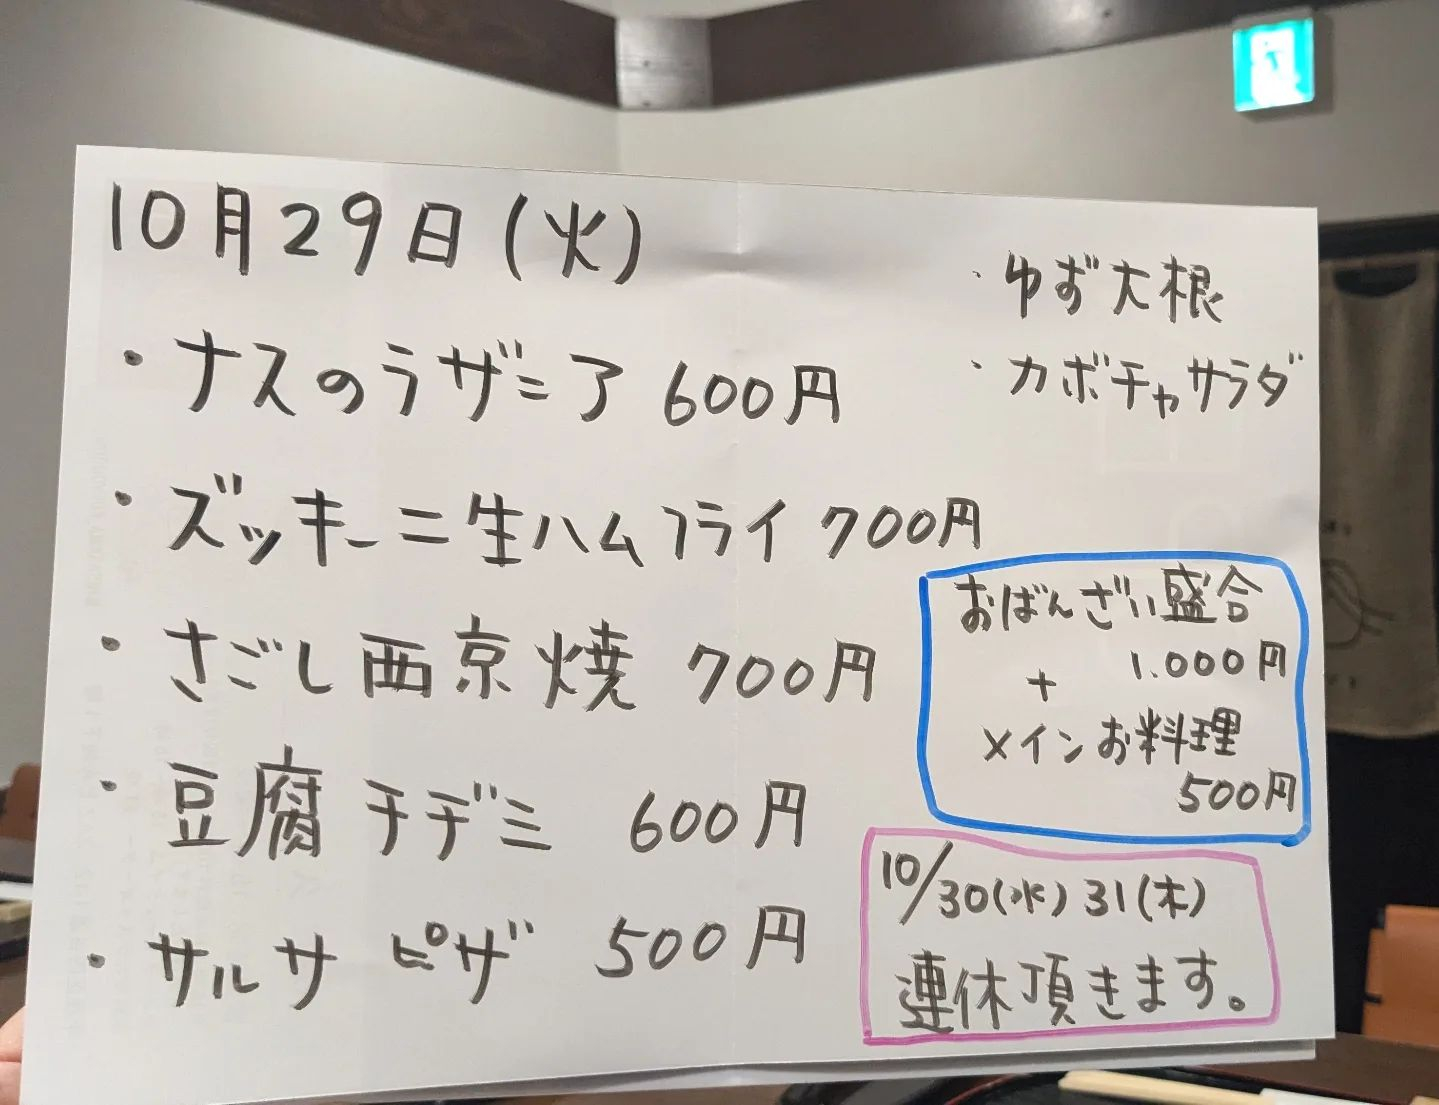 10月29日(火)
・ナスのラザニア 600円
・ズッキーニ生ハムフライ 700円
・さごし西京焼 700円
・豆腐チヂミ 600円
・サルサピザ 500円
・ゆず大根
・カボチャサラダ
おばんざい盛合
1.000円
+
メインお料理
500円
10/30(水)31(木)
連休頂きます。